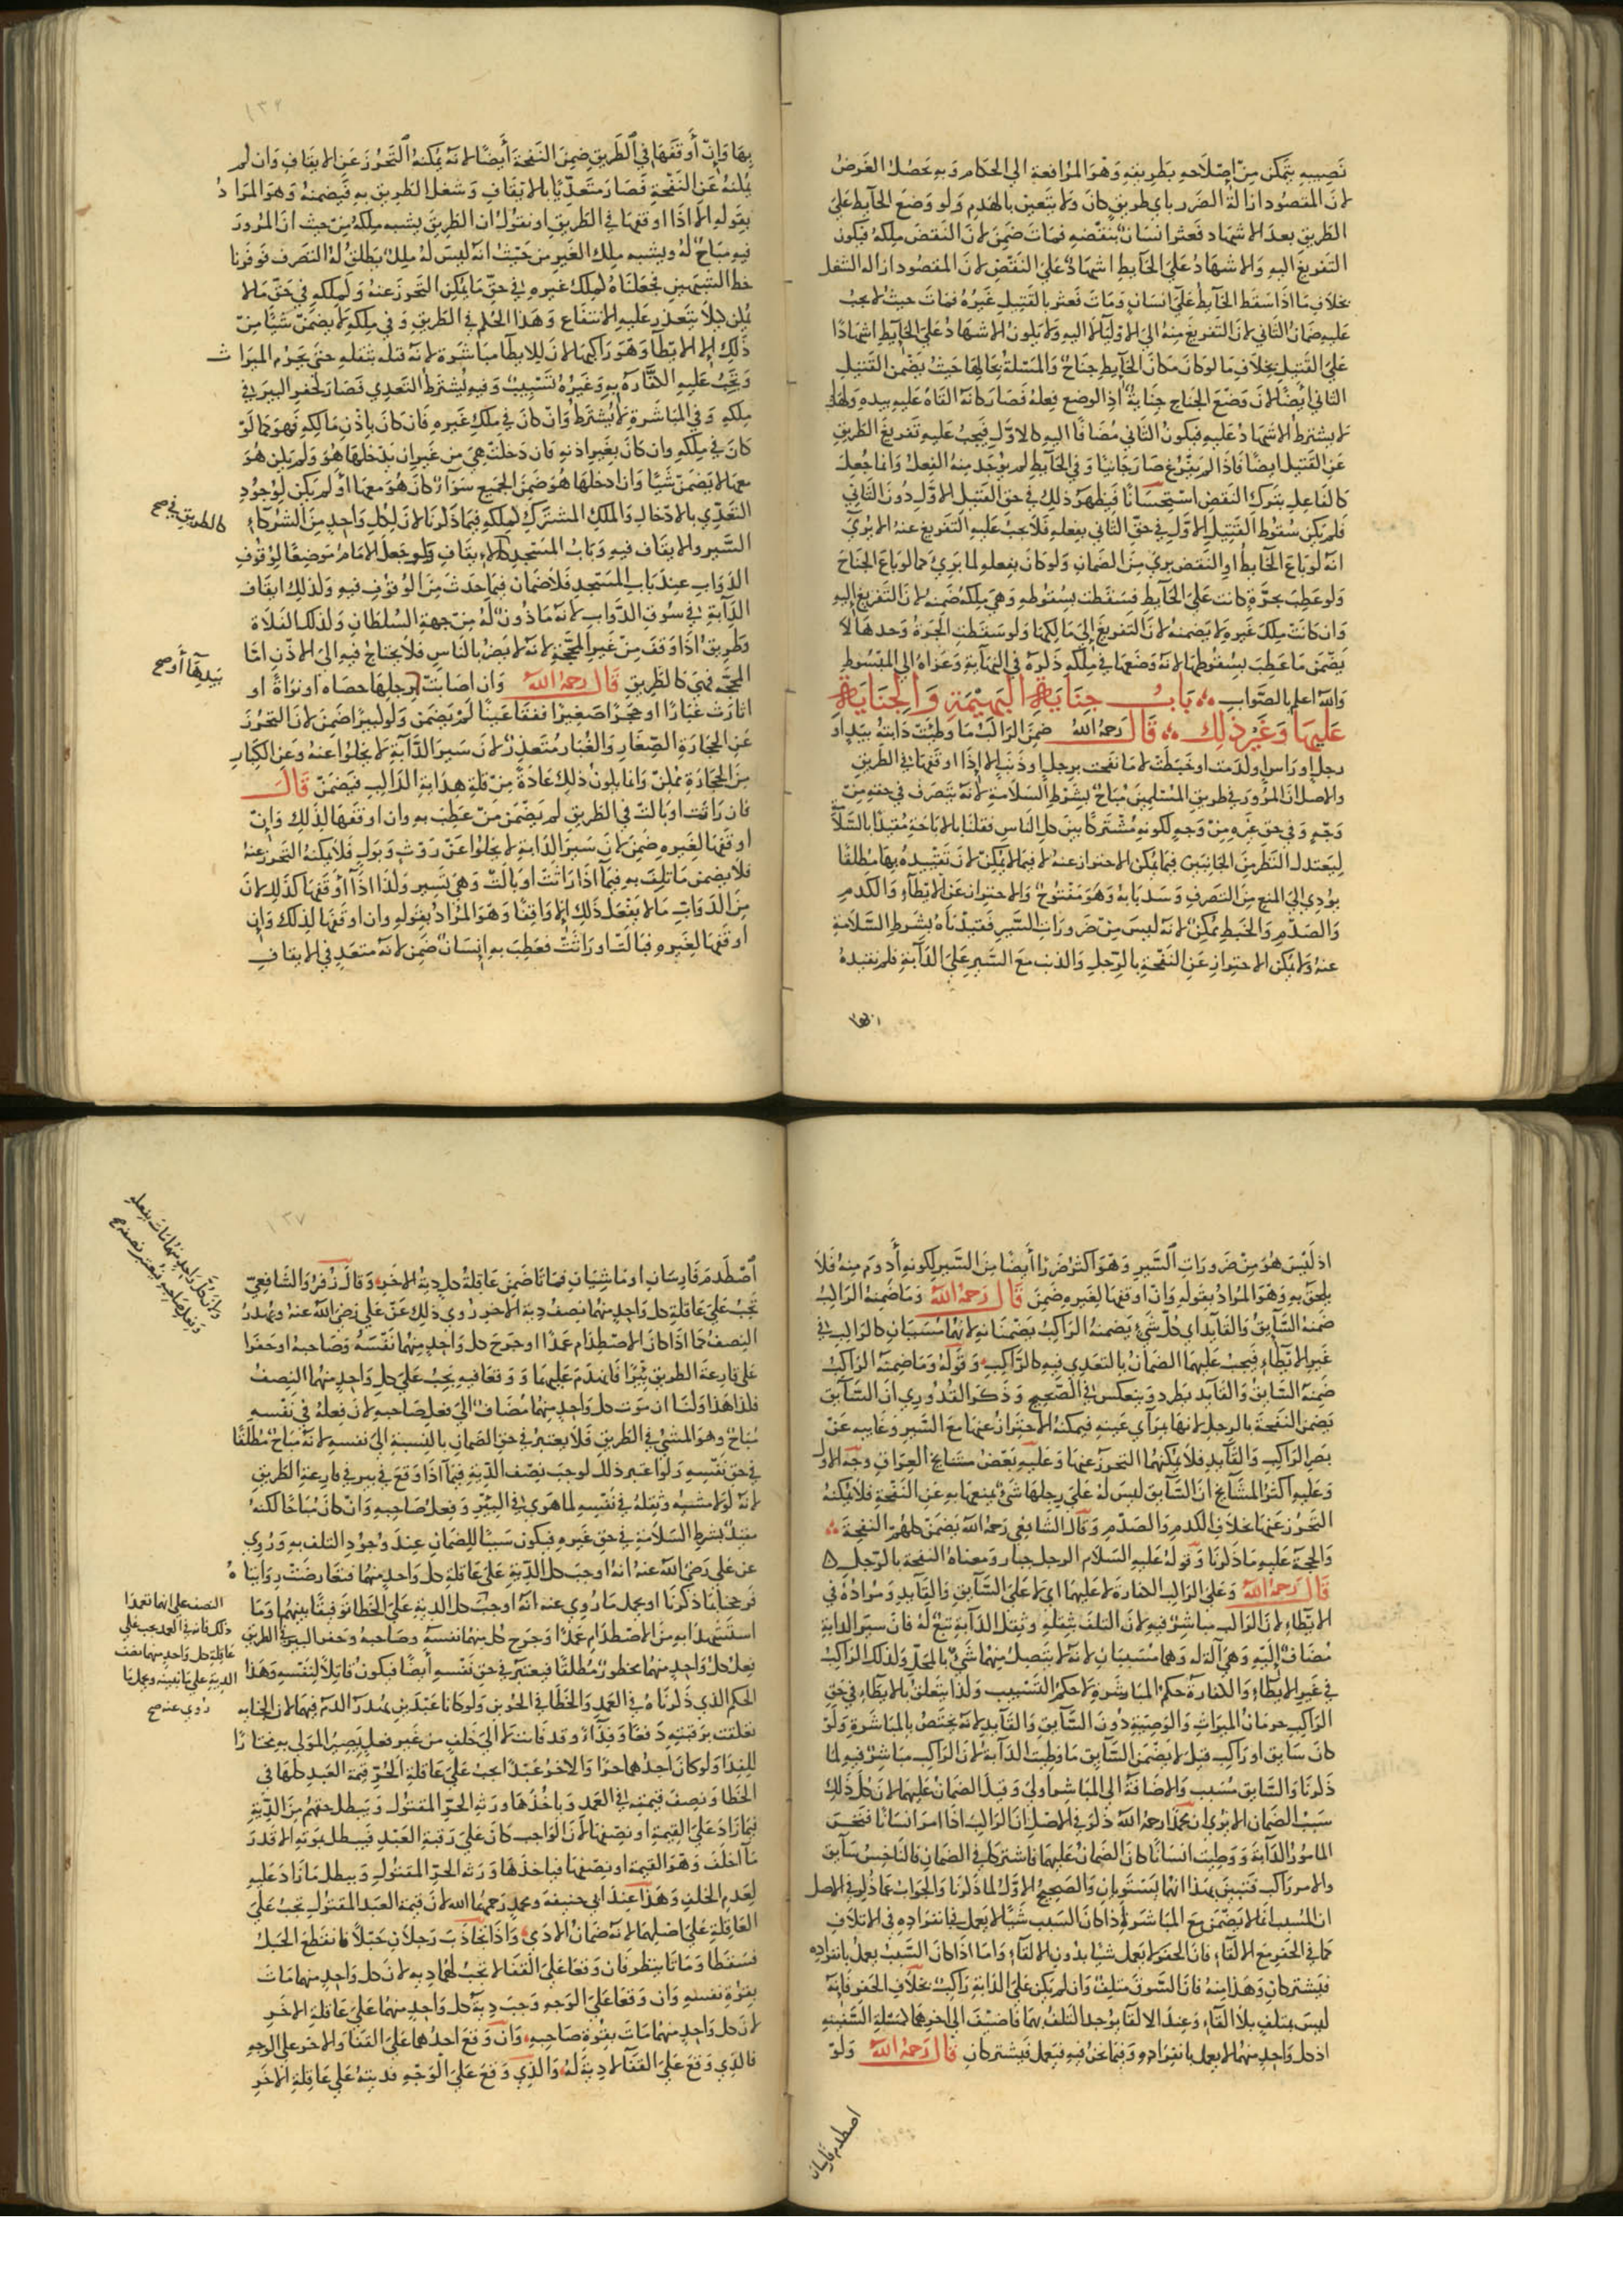 نصيبه يتمكن من اصلاحه بطريقه وهو المرافعة الى الحكام وبه يحصل الغرض
لان المقصود ازالة الضرر باي طريق كان ولا يتعين بالهدم ولو وضع الحايط على
الطريق بعد الاشهاد فعثر انسان بنقضه فمات ضمن لان النقض ملكه فيكون
التفريغ اليه والاشهاد على الحايط اشهاد على النقض لان المقصود ازاله الشغل
بخلاف ما اذا سقط الحايط على انسان ومات فعثر بالقتيل غيره فمات حيث لا يجب
عليه ضمان الثاني لان التفريغ منه الى الاوليآء لا اليه ولا يكون الاشهاد على الحايط اشهادًا
على القتيل بخلاف ما لو كان مكان الحايط جناح والمسئلة بحالها حيث يضمن القتيل
الثاني ايضًا لان وضع الجناح جناية اذ الوضع فعله فصار كانه القاه عليه بيده ولهذا
لا يشترط الاشهاد عليه فيكون الثاني مضافًا اليه كالاول فيجب عليه تفريغ الطريق
عن القتيل ايضًا فاذا لم يفرغ صار جانيًا وفي الحايط لم يوجد منه الفعل وانما جعل
كالفاعل بترك النقض استحسانًا فيظهر ذلك في حق القتيل الاول دون الثاني
فلم يكن سقوط القتيل الاول في حق الثاني بفعله فلا يجب عليه التفريغ عنه الا يرى
انه لو باع الحايط او النقض برئ من الضمان ولو كان بفعله لما برئ كما لو باع الجناح
ولو عطب بجرة كانت على الحايط فسقطت بسقوطه وهي ملكه ضمنه لان التفريغ اليه
وان كانت ملك غيره لا يضمنه لان التفريغ الى مالكها ولو سقطت الجرة وحدها لا
يضمن ما عطب بسقوطها لانه وضعها في ملكه ذكره في النهاية وعزاه الى المبسوط
والله اعلم بالصواب باب جناية البهيمة والجناية
عليها وغير ذلك قال رحمه الله ضمن الراكب ما وطئت دابته بيد او
رجل او راس او كدمت او خبطت لا ما نفحت برجل او ذنب الا اذا اوقفها في الطريق
والاصل ان المرور في طريق المسلمين مباح بشرط السلامة لانه يتصرف في حقه من
وجه وفي حق غيره من وجه لكونه مشتركًا بين كل الناس فقلنا بالاباحة مقيدًا بالسلامة
ليعتدل النظر من الجانبين فيما يمكن الاحتراز عنه لا فيما لا يمكن لان تقييده بها مطلقًا
يؤدي الى المنع من التصرف وسد بابه وهو مفتوح والاحتراز عن الايطآء والكدم
والصدم والخبط ممكن لانه ليس من ضرورات السير فقيدناه بشرط السلامة
عنه ولا يمكن الاحتراز عن النفحة بالرجل والذنب مع السير على الدآبة فلم نقيده
بها
١٣٦
بها وان أوقفها في الطريق ضمن النفحة أيضًا لانه يمكنه التحرز عن الايقاف وان لم
يمكنه عن النفحة فصار متعديًا بالايقاف وشغل الطريق به فيضمنه وهو المراد
بقوله الا اذا اوقفها في الطريق او نقول ان الطريق يشبه ملكه من حيث ان المرور
فيه مباح له ويشبه ملك الغير من حيث انه ليس له ملك يطلق له التصرف فوفرنا
حظ الشبهين فجعلناه كملك غيره في حق ما يمكن التحرز عنه وكملكه في حق ما لا
يمكن كيلا يتعذر عليه الانتفاع وهذا الحكم في الطريق وفي ملكه لا يضمن شيًا من
ذلك الا الايطآ وهو راكبها لان للايطآ مباشرة لانه قتله بثقله حتى يحرم الميراث
وتجب عليه الكفارة به وغيره تسبيب وفيه يشترط التعدي فصار كحفر البير في
ملكه وفي المباشرة لا يشترط وان كان في ملك غيره فان كان باذن مالكه فهو كما لو
كان في ملكه وان كان بغير اذنه فان دخلت هي من غير ان يدخلها هو ولم يكن هو
معها لا يضمن شيًا وان ادخلها هو ضمن الجميع سوآء كان هو معها او لم يكن لوجود
التعدي بالادخال والملك المشترك كملكه فيما ذكرنا لان لكل واحد من الشركآء
السير والايقاف فيه وباب المسجد كالايقاف ولو جعل الامام موضعًا لوقوف
الدواب عند باب المسجد فلا ضمان فيما حدث من الوقوف فيه وكذلك ايقاف
الدآبة في سوق الدواب لانه ماذون له من جهة السلطان وكذلك الفلاة
وطريق اذا وقف من غير المحجة لانه لا يضر بالناس فلا يحتاج فيه الى الاذن اما
المحجة فهي كالطريق قال رحمه الله وان اصابت برجلها حصاة او نواة او
اثارت غبارًا او حجرًا صغيرًا ففقا عينًا لم يضمن ولو كبيرًا ضمن لان التحرز
عن الحجارة الصغار والغبار متعذر لان سير الدآبة لا يخلو عنه وعن الكبار
من الحجارة ممكن وانما يكون ذلك عادة من قلة هداية الراكب فيضمن قال
فان راثت او بالت في الطريق لم يضمن من عطب به وان اوقفها لذلك وان
اوقفها لغيره ضمن لان سير الدابة لا يخلو عن روث وبول فلا يمكنه التحرز عنه
فلا يضمن ما تلف به فيما اذا راثت او بالت وهي تسير وكذا اذا أوقفها كذلك لان
من الدواب ما لا يفعل ذلك الا واقفًا وهو المراد بقوله وان اوقفها لذلك وان
اوقفها لغيره فبالت او راثت فعطب به انسان ضمن لانه متعد في الايقاف
كالطريق صح
بيدها أو صح
اذ ليس هو من ضرورات السير وهو اكثر ضررًا أيضًا من السير لكونه أدوم منه فلا
يلحق به وهو المراد بقوله وان اوقفها لغيره ضمن قال رحمه الله وما ضمنه الراكب
ضمنه السآيق والقآيد اي كل شيء يضمنه الراكب يضمنانه لانهما مسببان كالراكب في
غير الايطآء فيجب عليهما الضمان بالتعدي فيه كالراكب وقوله وما ضمنه الراكب
ضمنه السايق والقآيد يطرد وينعكس في الصحيح وذكر القدوري ان السآيق
يضمن النفحة بالرجل لانها بمرآي عينه فيمكنه الاحتراز عنها مع السير وغايبه عن
بصر الراكب والقآيد فلا يمكنهما التحرز عنها وعليه بعض مشايخ العراق وجه الاول
وعليه اكثر المشآيخ ان السآيق ليس له على رجلها شئ يمنعها به عن النفحة فلا يمكنه
التحرز عنها بخلاف الكدم والصدم وقال الشافعي رحمه الله يضمن كلهم النفحة
والحجة عليه ما ذكرنا وقوله عليه السلام الرجل جبار ومعناه النفحة بالرجل
قال رحمه الله وعلى الراكب الكفارة لا عليهما اي لا على السآيق والقآيد ومراده في
الايطآء لان الراكب مباشر فيه لان التلف بثقله وثقل الدآبة تبع له فان سير الدابة
مضاف اليه وهي آلة له وهما مسببان لانه لا يتصل منهما شئ بالمحل وكذلك الراكب
في غير الايطآء والكفارة حكم المباشرة لا حكم التسبيب وكذا يتعلق بالايطآء في حق
الراكب حرمان الميراث والوصية دون السآيق والقآيد لانه يختص بالمباشرة ولو
كان سايق وراكب قيل لا يضمن السآيق ما وطئت الدآبة لان الراكب مباشر فيه لما
ذكرنا والسآيق مسبب والاضافة الى المباشر اولى وقيل الضمان عليهما لان كل ذلك
سبب الضمان الا يرى ان محمدًا رحمه الله ذكر في الاصل ان الراكب اذا امر انسانًا فنخس
المامور الدآبة ووطئت انسانًا كان الضمان عليهما فاشتركا في الضمان فالناخس سآيق
والامر راكب فتبين بهذا انهما يستويان والصحيح الاول لما ذكرنا والجواب عما ذكر في الاصل
ان المسبب انما لا يضمن مع المباشرة اذا كان السبب شيًا لا يعمل بانفراده في الاتلاف
كما في الحفر مع الالقآء فان الحفر لا يعمل شيا بدون الالقآء واما اذا كان السبب يعمل بانفراده
فيشتركان وهذا منه فان السوق متلف وان لم يكن على الدابة راكب بخلاف الحفر فانه
ليس بمتلف بلا القآء وعند الالقا يوجد التلف بهما فاضيف الى اخرهما لمسئلة السفينه
اذ كل واحد منهما لا يعمل بانفراده وفيما نحن فيه فيعمل فيشتركان قال رحمه الله ولو
اصطدم فارسان
١٣٧
اصطدم فارسان او ماشيان فماتا ضمن عاقلة كل دية الاخر وقال زفر والشافعي
تجب على عاقلة كل واحد منهما نصف دية الاخر روي ذلك عن علي رضي الله عنه ويهدر
النصف كما اذا كان الاصطدام عمدًا او جرح كل واحد منهما نفسه وصاحبه او حفرا
على قارعة الطريق بئرًا فانهدم عليهما ووقعا فيه يجب على كل واحد منهما النصف
فكذا هذا ولنا ان موت كل واحد منهما مضاف الى فعل صاحبه لان فعله في نفسه
مباح وهو المشي في الطريق فلا يعتبر في حق الضمان بالنسبة الى نفسه لانه مباح مطلقًا
في حق نفسه ولو اعتبر ذلك لوجب نصف الدية فيما اذا وقع في بير في قارعة الطريق
لانه لولا مشيه وثقله في نفسه لما هوي في البئر وفعل صاحبه وان كان مباحًا لكنه
مقيد بشرط السلامة في حق غيره فيكون سببًا للضمان عند وجود التلف به وروي
عن علي رضي الله عنه انه اوجب كل الدية على عاقلة كل واحد منهما فتعارضت روايتاه
فرجحنا بما ذكرنا او يحمل ما روي عنه انه اوجب كل الدية على الخطا توفيقًا بينهما وما
استشهدا به من الاصطدام عمدًا وجرح كل منهما نفسه وصاحبه وحفر البير في الطريق
فعل كل واحد منهما محظور مطلقًا فيعتبر في حق نفسه أيضًا فيكون قاتلًا لنفسه وهذا
الحكم الذي ذكرناه في العمد والخطا في الحرين ولو كانا عبدين يهدر الدم فيهما لان الجنايه
تعلقت برقبته دفعًا وفدآء وقد فاتت لا الى خلف من غير فعل يصير المولى به مختارًا
للفدا ولو كان احدهما حرًا والاخر عبدًا يجب على عاقلة الحر قيمة العبد كلها في
الخطا ونصف قيمته في العمد وياخذها ورثه الحر المقتول ويبطل حقهم من الدية
فيما زاد على القيمة او نصفها لان الواجب كان على رقبة العبد فيبطل بموته الا قدر
ما اخلف وهو القيمة او نصفها فياخذها ورثه الحر المقتول ويبطل ما زاد عليه
لعدم الخلف وهذا عند ابي حنيفة ومحمد رحمهما الله لان قيمة العبد المقتول تجب على
العاقلة على اصلهما لانه ضمان الادمي واذا تجاذب رجلان حبلًا فانقطع الحبل
فسقطا وماتا ينظر فان وقعا على القفا لا تجب لهما دية لان كل واحد منهما مات
بقوة نفسه وان وقعا على الوجه وجب دية كل واحد منهما على عاقلة الاخر
لان كل واحد منهما مات بقوة صاحبه وان وقع احدهما على القفا والاخر على الوجه
فالذي وقع على القفا لا دية له والذي وقع على الوجه فديته على عاقلة الاخر
ولان كل واحد منهما مات بفعله
وفعل صاحبه فيعتبر نصفه صح
النصف على انهما تعمدا
ذلك فانه في العمد يجب على
عاقلة كل واحد منهما نصف
الدية على ما نبينه ويحمل ما
روي عنه صح